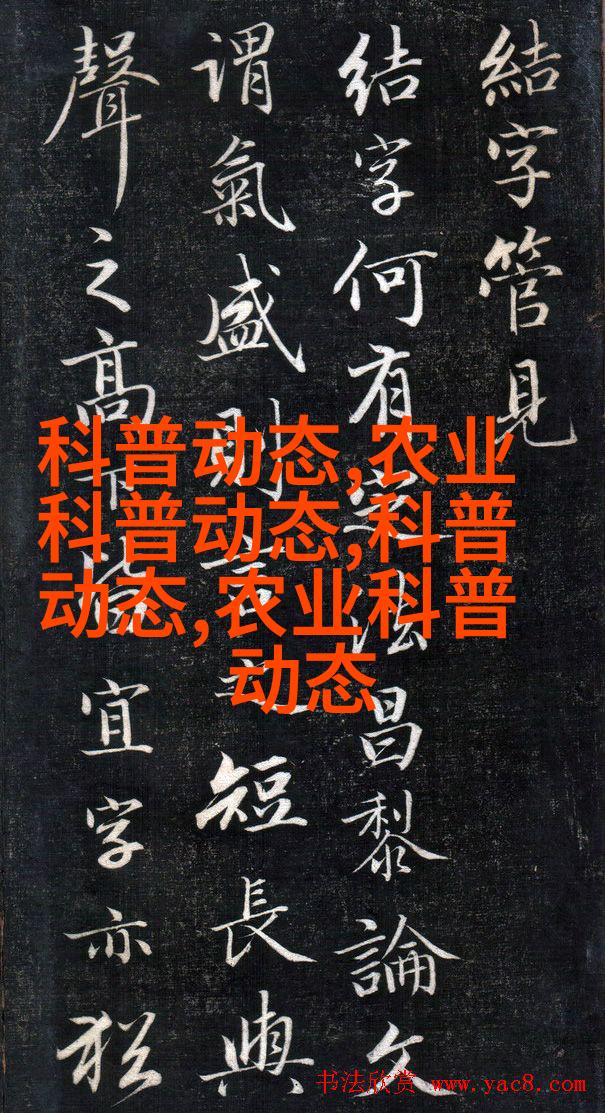 結字管見
结字何有定法昌黎論文
謂氣盛則言之短長與
聲之高下皆宜字亦猶
科普动态,农业
科普动态,科普
动态,农业科普
动态
书法欣赏 www.yac8.com